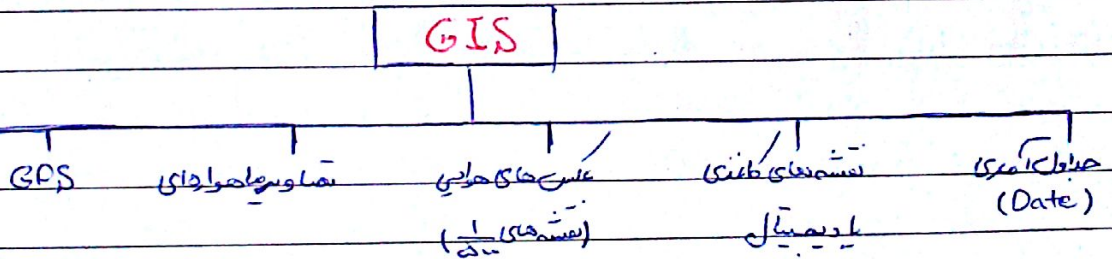 GIS
جداول آماری
(Date)
نقشه‌های کاغذی
یا دیجیتال
عکس‌های هوایی
(نقشه‌های ۱/۵۰۰)
تصاویر ماهواره‌ای
GPS